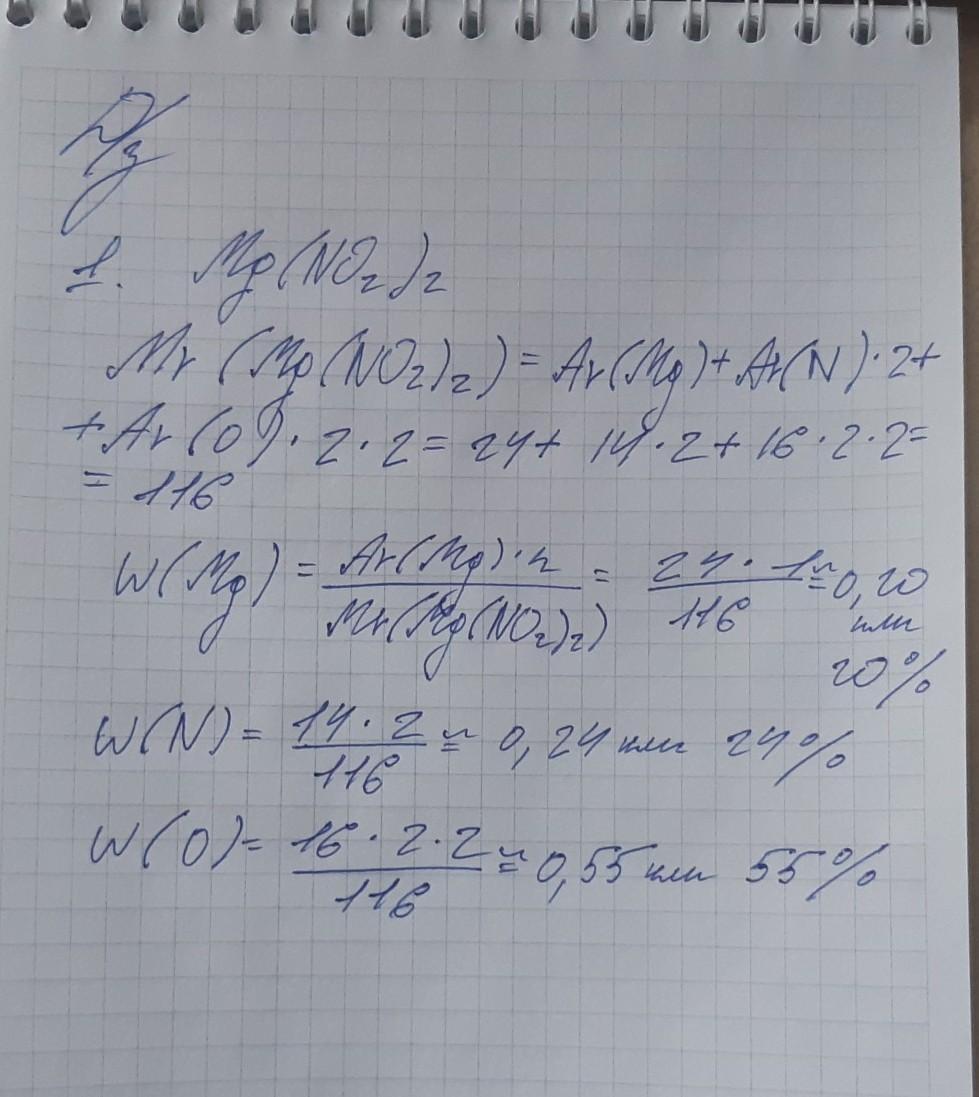 Д/з
1. Mg(NO₂)₂
Mr (Mg(NO₂)₂) = Ar(Mg) + Ar(N) · 2 +
+ Ar (O) · 2 · 2 = 24 + 14 · 2 + 16 · 2 · 2 =
= 116
W(Mg) = Ar(Mg) · n / Mr(Mg(NO₂)₂) = 24 · 1 / 116 ≈ 0,20
или
20%
W(N) = 14 · 2 / 116 ≈ 0,24 или 24%
W(O) = 16 · 2 · 2 / 116 ≈ 0,55 или 55%